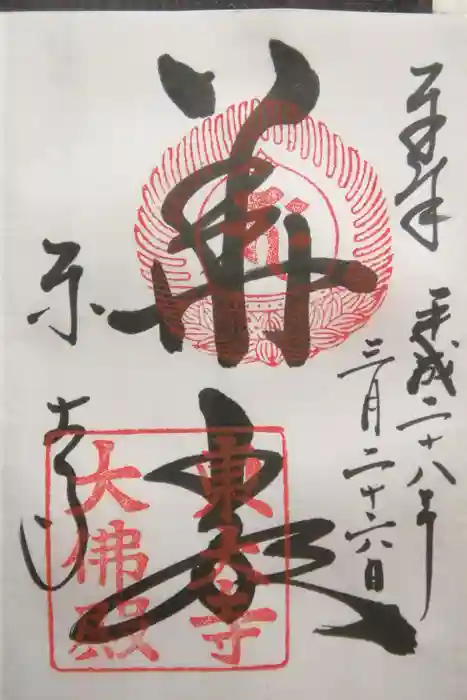 奉拝
平成二十八年
三月二十六日
華厳
東大寺
東大寺
大佛殿